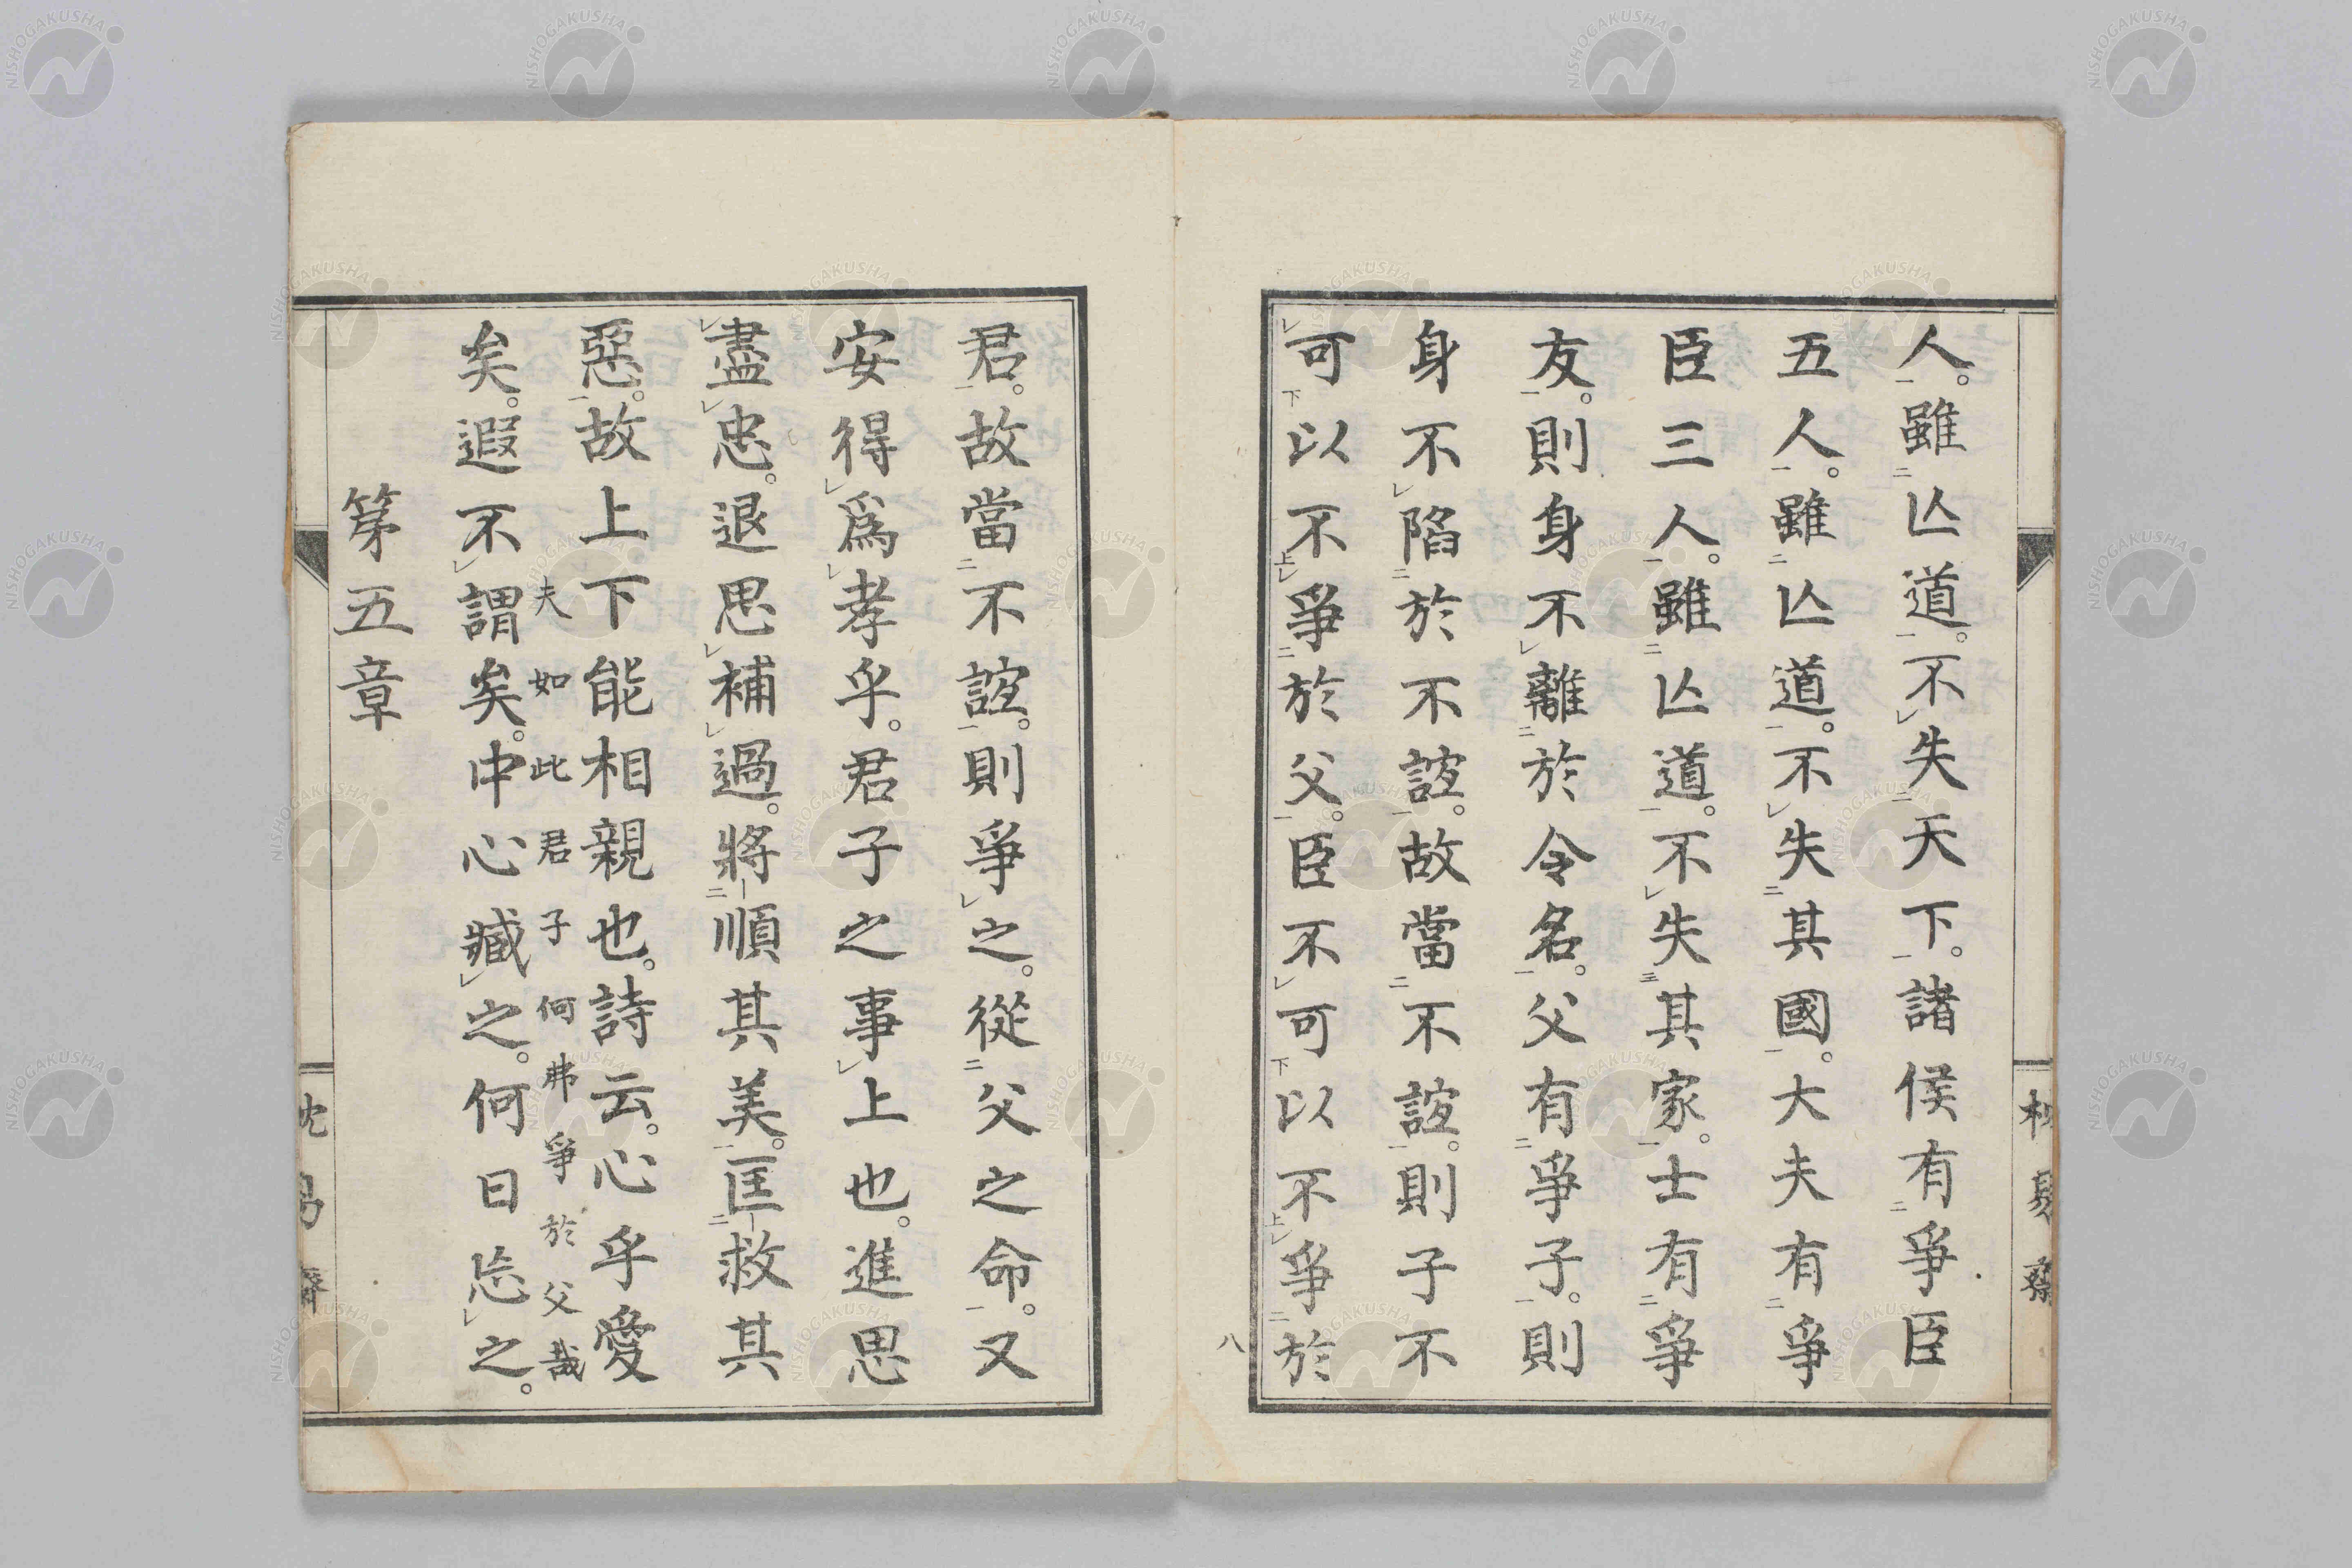 人。雖亾道。不失天下。諸侯有爭臣
五人。雖亾道。不失其國。大夫有爭
臣三人。雖亾道。不失其家。士有爭
友。則身不離於令名。父有爭子。則
身不陷於不誼。故當不誼。則子不
可以不爭於父。臣不可以不爭於
八
君。故當不誼。則爭之。從父之命。又
安得爲孝乎。君子之事上也。進思
盡忠。退思補過。將順其美。匡救其
惡。故上下能相親也。詩云。心乎愛
夫如此君子何弗爭於父哉
矣。遐不謂矣。中心臧之。何日忘之。
第五章